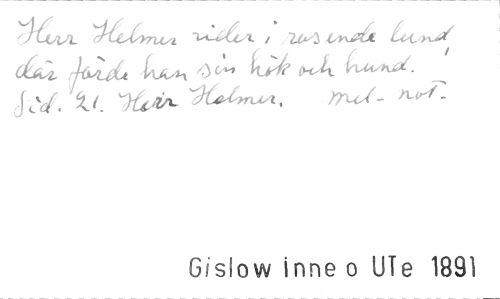 Herr Helmer rider i rosende lund,
där förde han sin hök och hund.
Sid. 21. Herr Helmer. Mel- not-
Gislow inne o UTe 1891